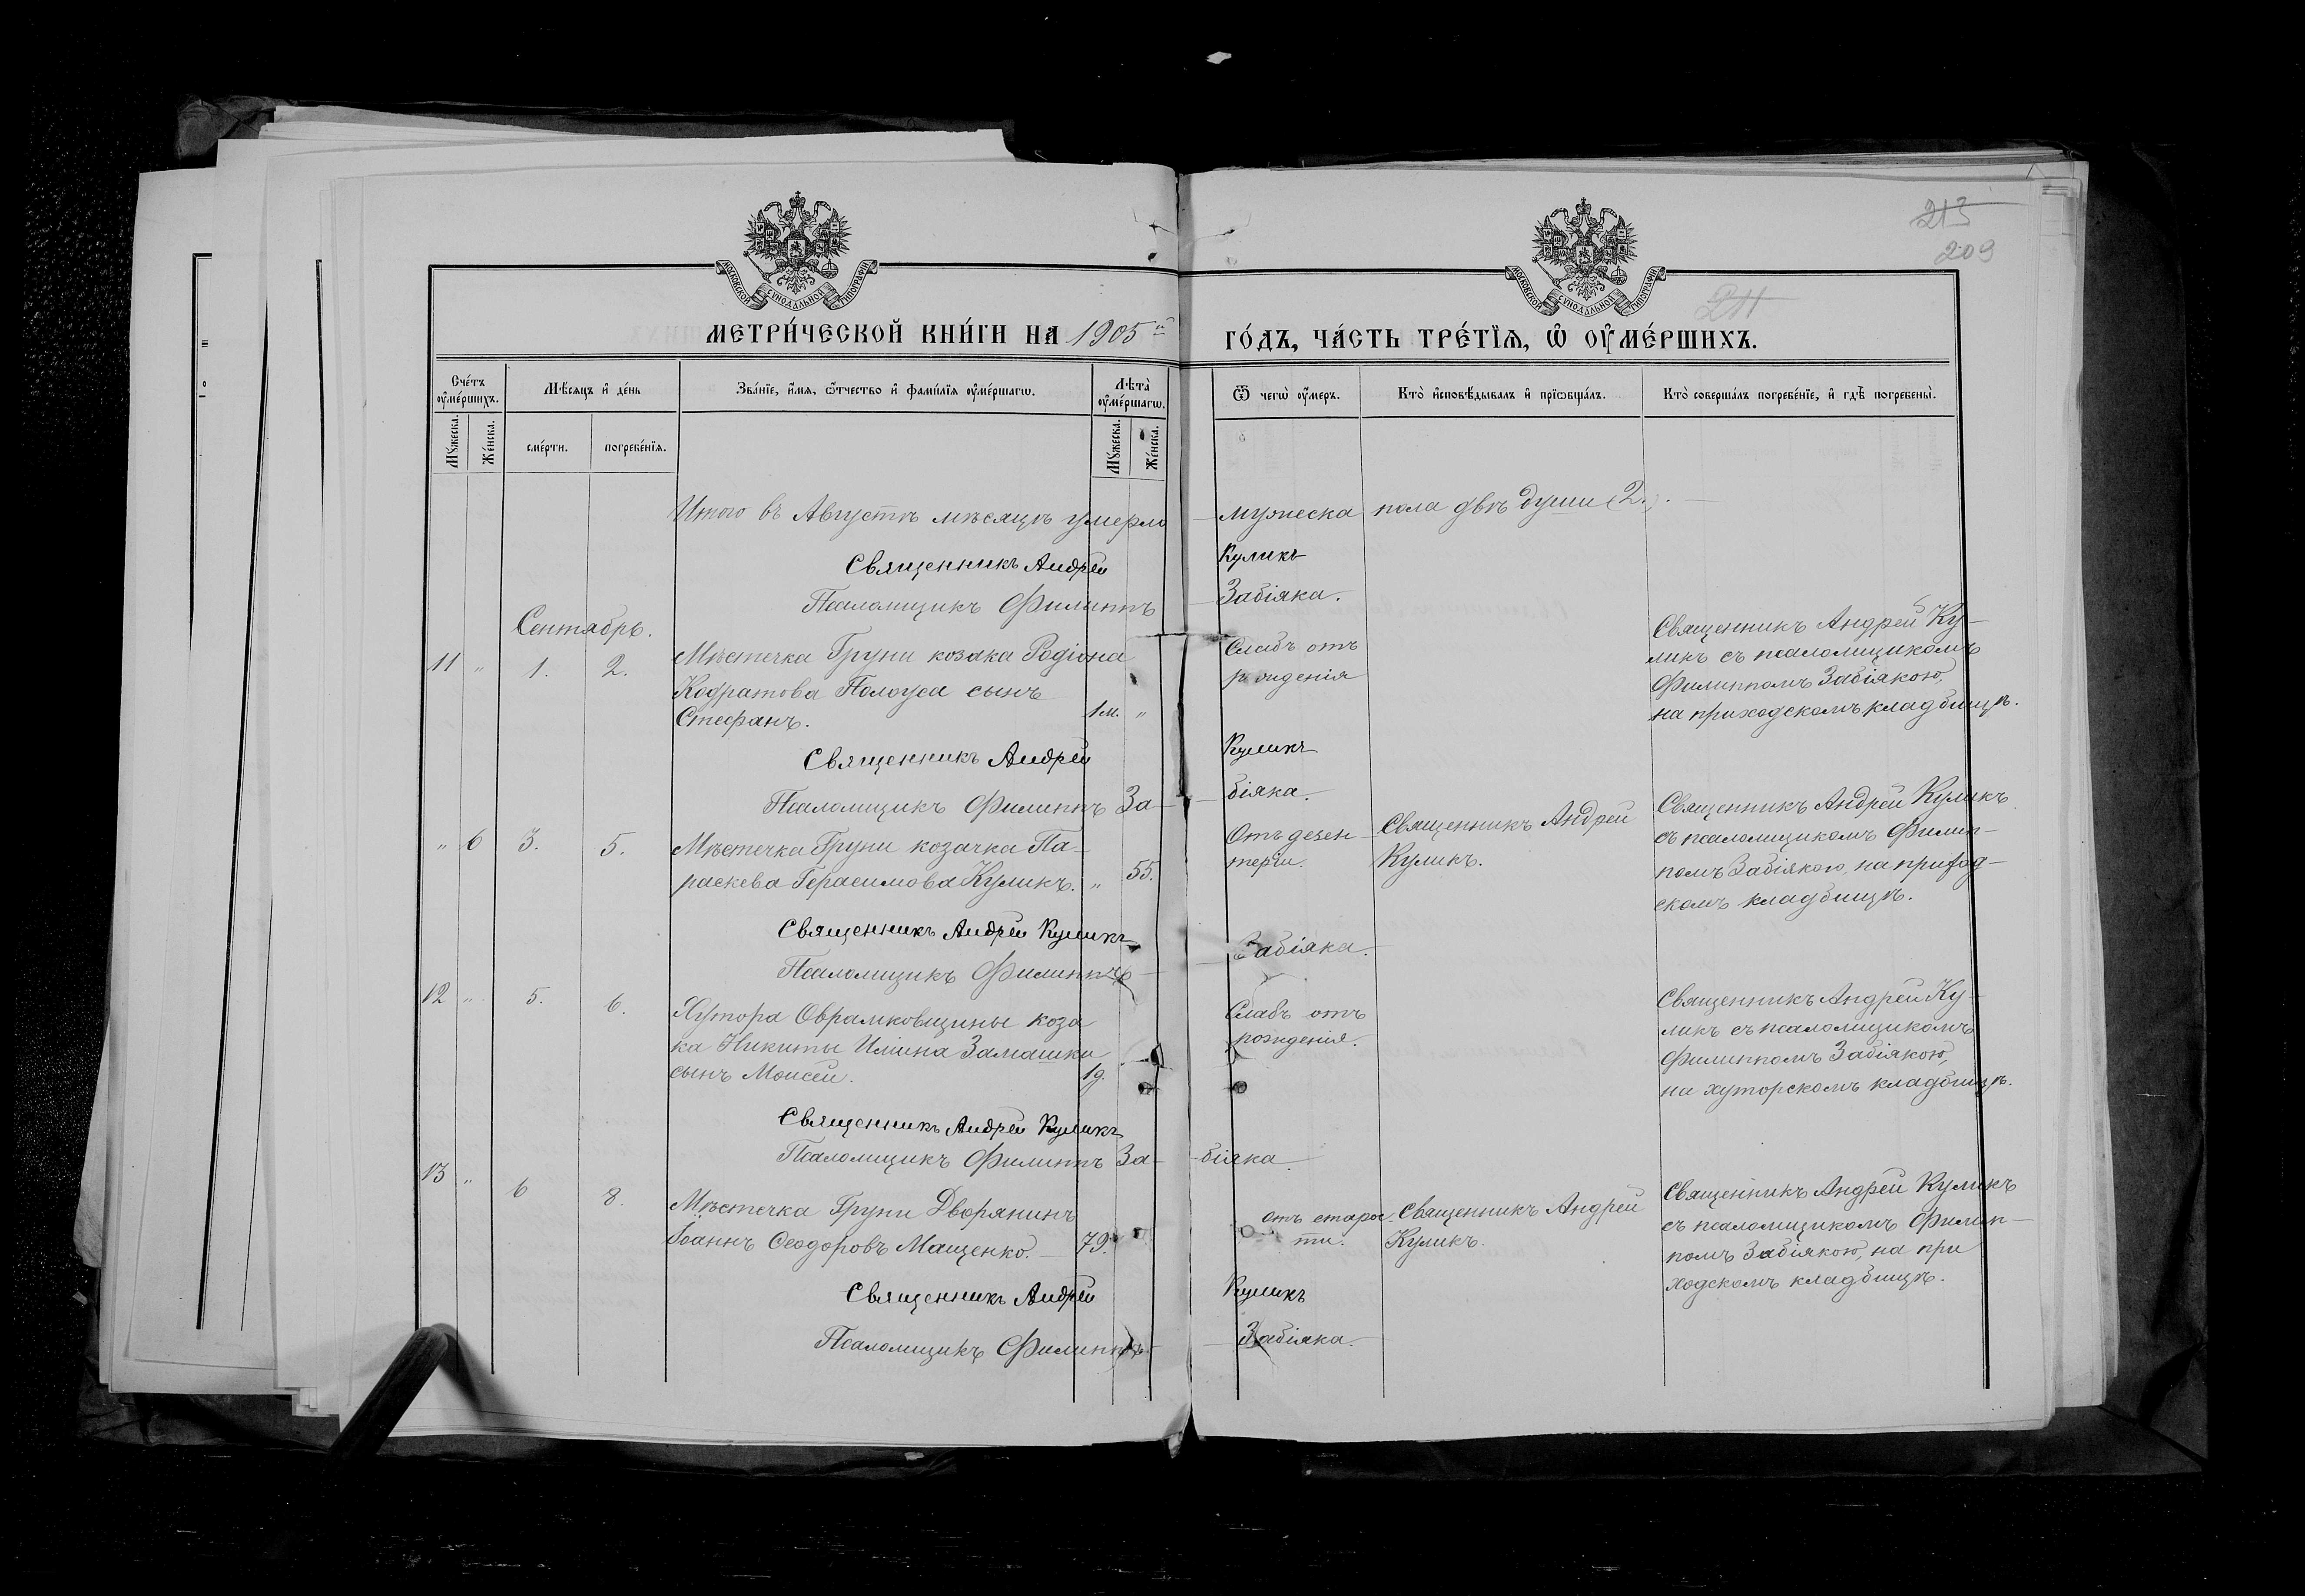 213
209
211
МОСКОВСКОЙ СѴНОДАЛЬНОЙ ТИПОГРАФІИ
МОСКОВСКОЙ СѴНОДАЛЬНОЙ ТИПОГРАФІИ
МЕТРИ́ЧЕСКОЙ КНИ́ГИ НА 1905й ГО́ДЪ, ЧА́СТЬ ТРЕ́ТЇѦ, Ѡ҆ ОУ҆МЕ́РШИХЪ.
Сче́тъ оу҆ме́ршихъ.
Мѣ́сѧцъ и҆ де́нь
Зва́нїе, и҆́мѧ, ѻ҆́тчество и҆ фами́лїѧ оу҆ме́ршагѡ.
Лѣ́та оу҆ме́ршагѡ.
Ѿ чегѡ̀ оу҆́меръ.
Кто̀ и҆сповѣ́дывалъ и҆ прїѡбща́лъ.
Кто̀ соверша́лъ погребе́нїе, и҆ гдѣ̀ погребены̀.
Мꙋ́жеска.
Же́нска.
сме́рти.
погребе́нїѧ.
Мꙋ́жеска.
Же́нска.
Итого въ Августѣ мѣсяцѣ умерло — мужеска пола двѣ души (2.).
Священникъ Андрей Куликъ
Псаломщикъ Филиппъ — Забіяка.
Сентябрь.
11 " 1. 2.
Мѣстечка Груни козака Родіона
Кодратова Полоуса сынъ
Стефанъ. 1м. "
Слабъ отъ
рожденія
Священникъ Андрей Ку-
ликъ съ псаломщикомъ
Филиппомъ Забіякою,
на приходскомъ кладбищѣ.
Священникъ Андрей Куликъ
Псаломщикъ Филиппъ За- -біяка.
" 6 3. 5.
Мѣстечка Груни козачка Па-
раскева Герасимова Куликъ. " 55.
Отъ дезен-
теріи.
Священникъ Андрей
Куликъ.
Священникъ Андрей Куликъ
съ псаломщикомъ Филип-
помъ Забіякою, на приход-
скомъ кладбищѣ.
Священникъ Андрей Куликъ
Псаломщикъ Филиппъ — Забіяка.
12 " 5. 6.
Хутора Оврамковщины коза
ка Никиты Иліина Замашки
сынъ Моисей. 1г.
Слабъ отъ
рожденія.
Священникъ Андрей Ку-
ликъ съ псаломщикомъ
Филиппомъ Забіякою,
на хуторскомъ кладбищѣ.
Священникъ Андрей Куликъ
Псаломщикъ Филиппъ За- -біяка.
13 " 6 8.
Мѣстечка Груни Дворянинъ
Іоаннъ Ѳеодоровъ Мащенко. — 79.
отъ старос-
ти.
Священникъ Андрей
Куликъ.
Священникъ Андрей Куликъ
съ псаломщикомъ Филип-
помъ Забіякою, на при
ходскомъ кладбищѣ.
Священникъ Андрей Куликъ
Псаломщикъ Филиппъ — Забіяка.